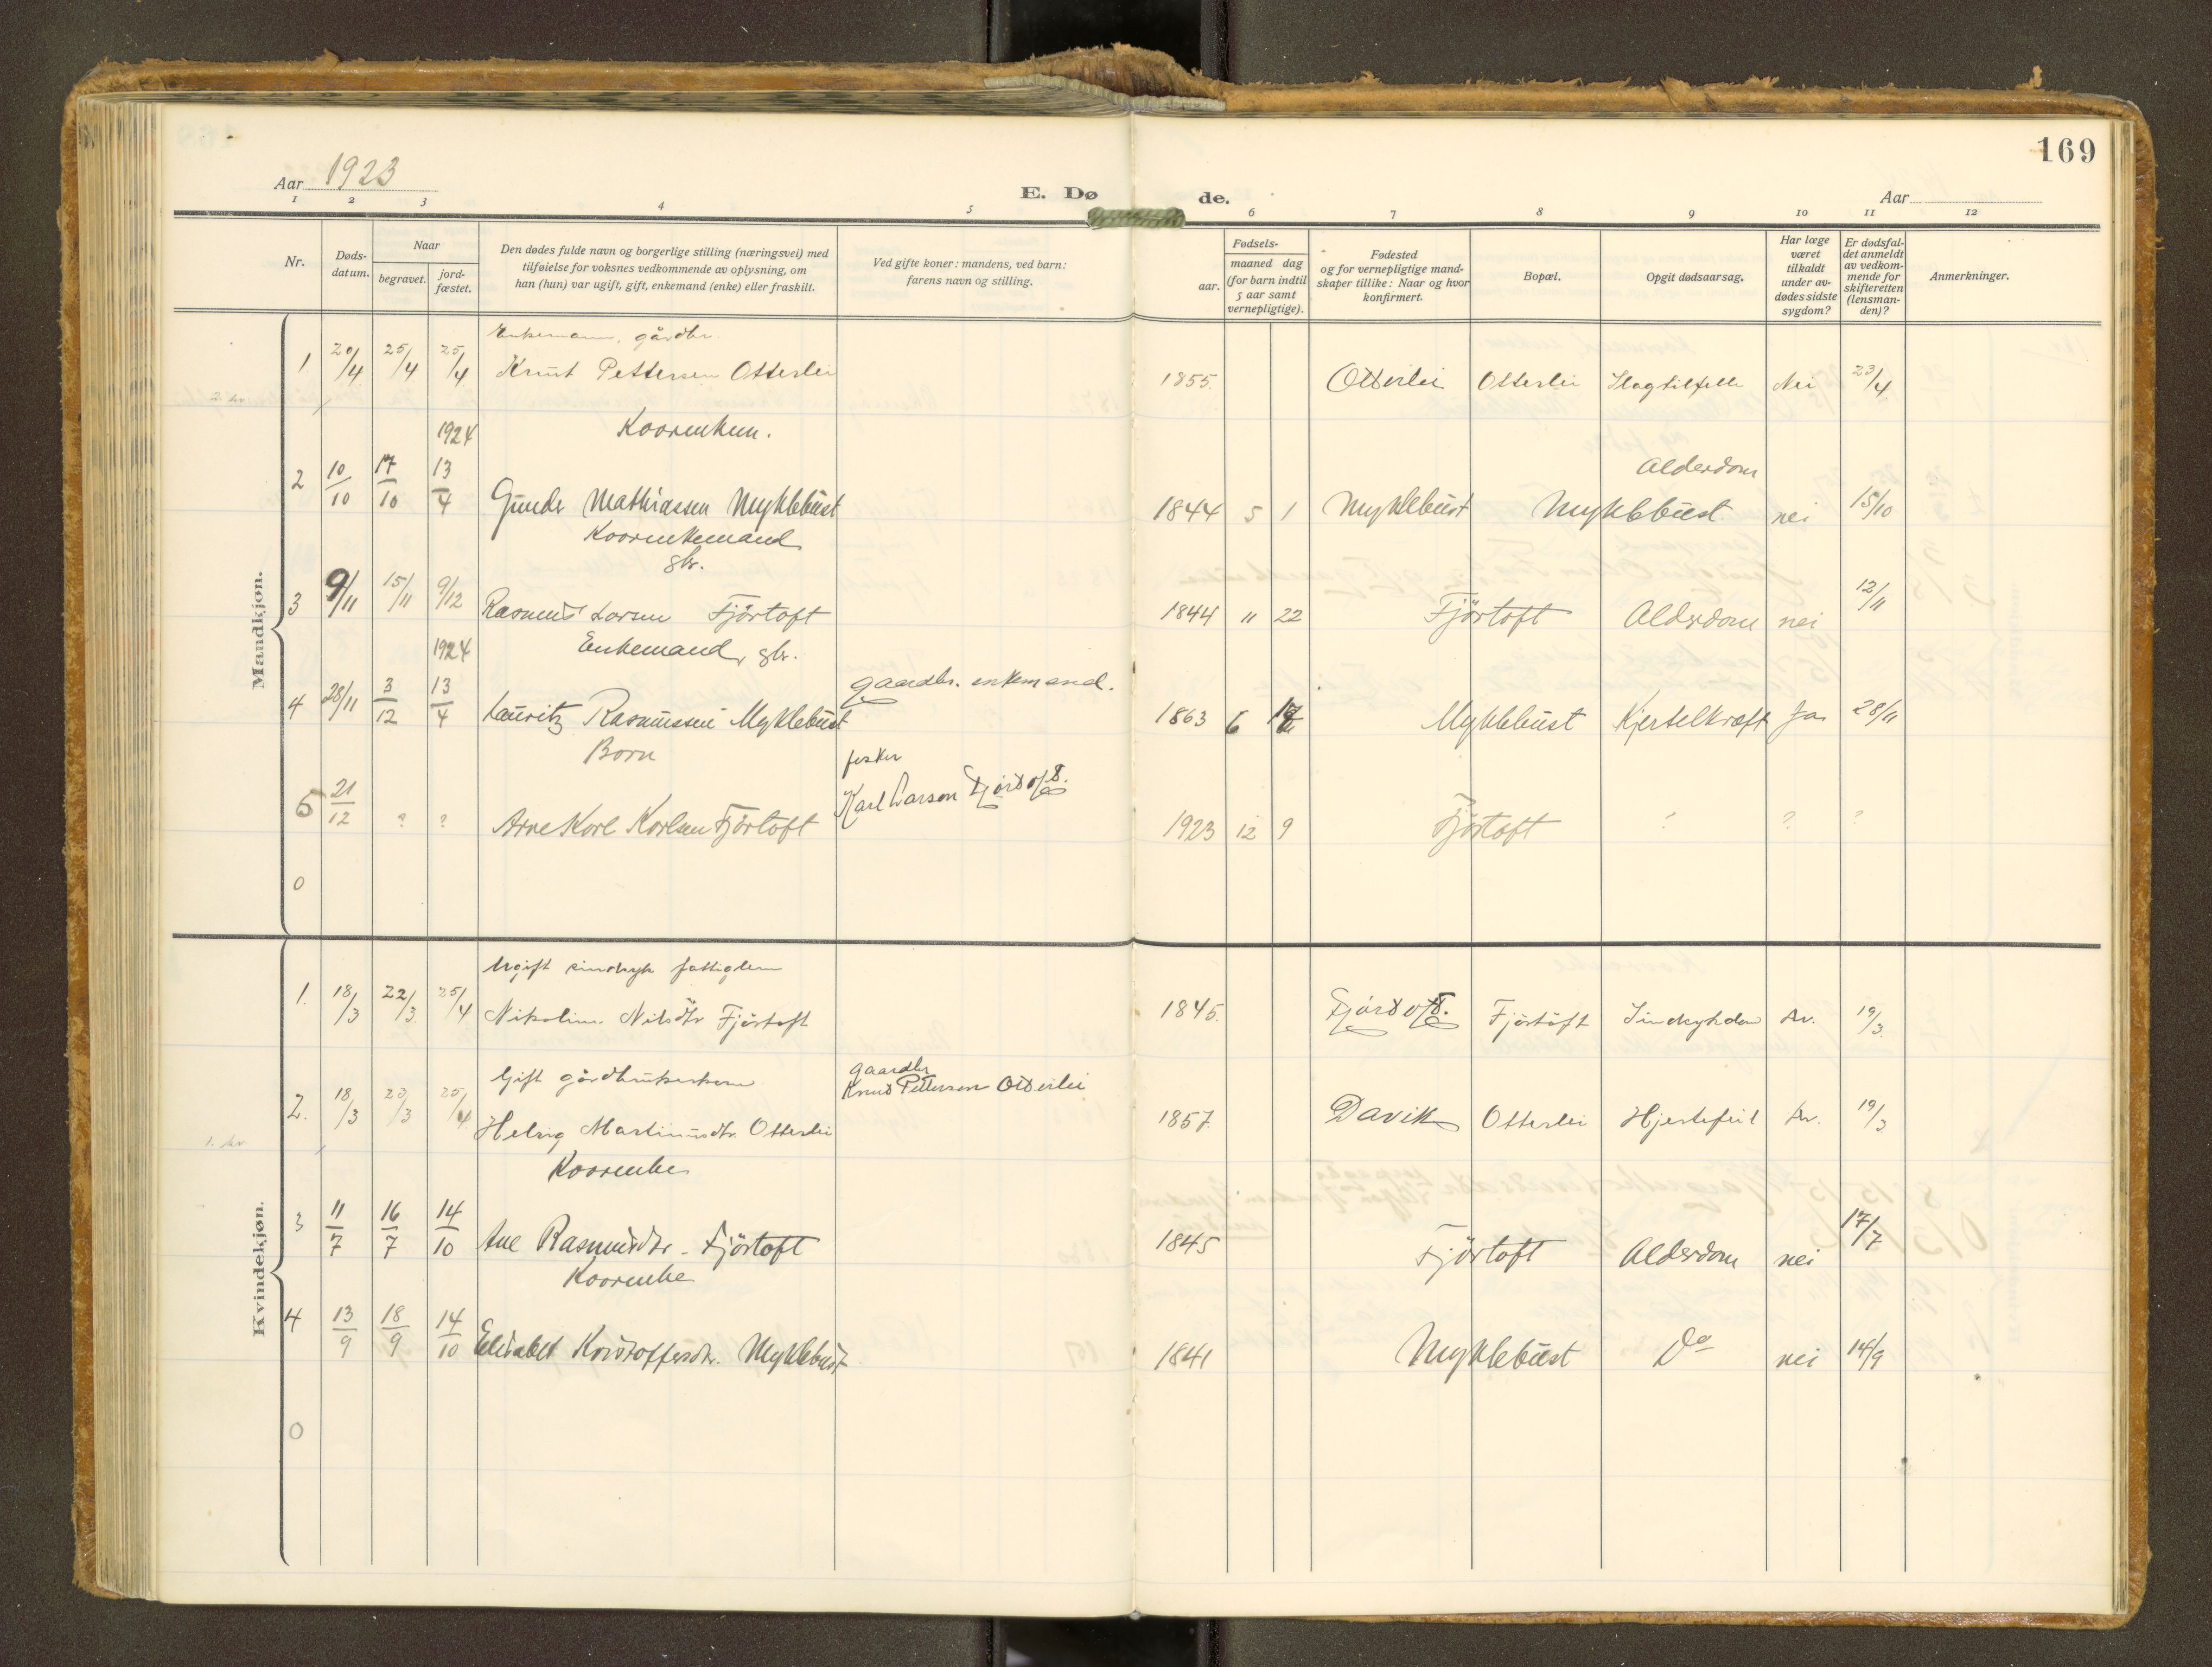 169
Aar 1923
E. Døde.
Aar
1 2 3 4 5 6 7 8 9 10 11 12
Nr.
Døds-datum.
Naar
begravet.
jord-fæstet.
Den dødes fulde navn og borgerlige stilling (næringsvei) med
tilføielse for voksnes vedkommende av oplysning, om
han (hun) var ugift, gift, enkemand (enke) eller fraskilt.
Ved gifte koner: mandens, ved barn:
farens navn og stilling.
Fødsels-
aar.
maaned dag
(for barn indtil
5 aar samt
vernepligtige).
Fødested
og for vernepligtige mand-
skaper tillike: Naar og hvor
konfirmert.
Bopæl.
Opgit dødsaarsag.
Har læge
været
tilkaldt
under av-
dødes sidste
sygdom?
Er dødsfal-
det anmeldt
av vedkom-
mende for
skifteretten
(lensman-
den)?
Anmerkninger.
Mandkjøn.
Enkemann, gårdbr.
1. 20/4 25/4 25/4 Knut Pettersen Otterlei 1855. Otterlei Otterlei Slagtilfelle Nei 23/4
1924 Kaarenkem.
Alderdom
2 10/10 17/10 13/4 Gunder Mathiassen Myklebust 1844 5 1 Myklebust Myklebust nei 15/10
Kaarenkemand
gbr.
3 9/11 15/11 9/12 Rasmus Larsen Fjörtoft 1844 11 22 Fjörtoft Alderdom nei 12/11
1924 Enkemand, gbr.
gaardbr. enkemand.
4 28/11 3/12 13/4 Lauritz Rasmussen Myklebust 1863 6 Myklebust Kjertelkræft Ja 28/11
Born fisker
Karl Larsen Fjørtoft.
5 21/12 ? ? Arne Karl Karlsen Fjörtoft 1923 12 9 Fjörtoft ? ? ?
0
Kvindekjøn.
Ugift sindsyk fattiglem
1. 18/3 22/3 25/4 Nikoline Nilsdtr Fjörtoft 1845. Fjørtoft. Fjörtoft Sindsykdom 19/3
Gift gårdbrukerkone gaardbr
Knud Pettersen Otterlei
2. 18/3 23/3 25/4 Helvig Martinusdtr. Otterlei 1857. Davik Otterlei Hjertefeil 19/3
Kaarenke
3 11/7 16/7 14/10 Ane Rasmusdtr. Fjörtoft 1845 Fjörtoft Alderdom nei 17/7
Kaarenke
4 13/9 18/9 14/10 Elisabet Kristoffersdtr. Myklebust 1841 Myklebust Do nei 14/9
0